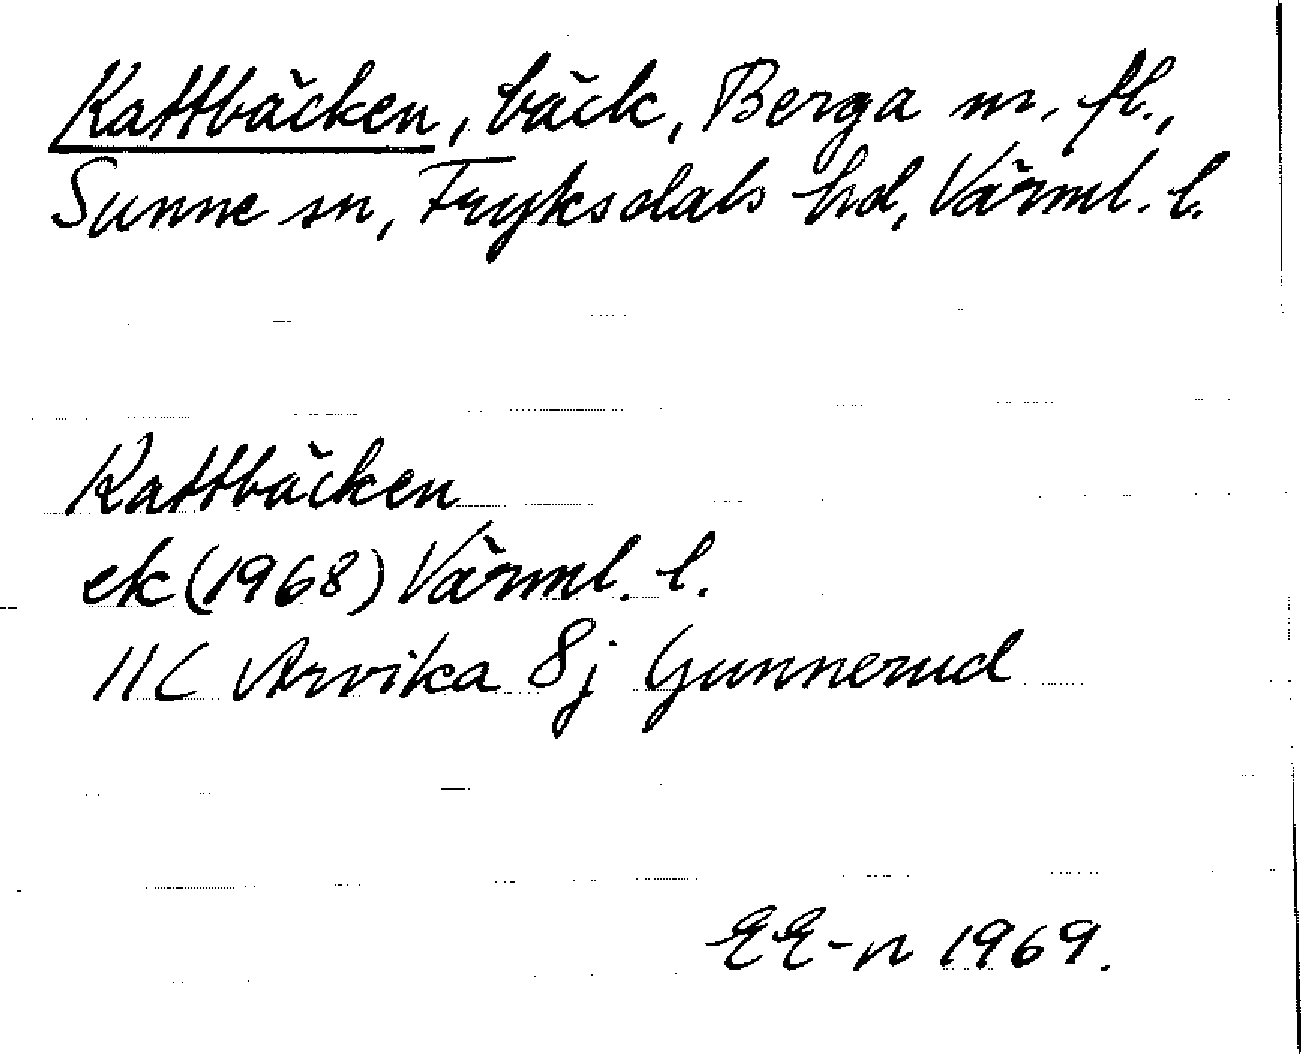 Kattbäcken, bäck, Berga m. fl.,
Sunne sn, Fryksdals hd, Värml. l.
Kattbäcken
ek (1968) Värml. l.
11C Arvika 8j Gunnerud
EE-n 1969.